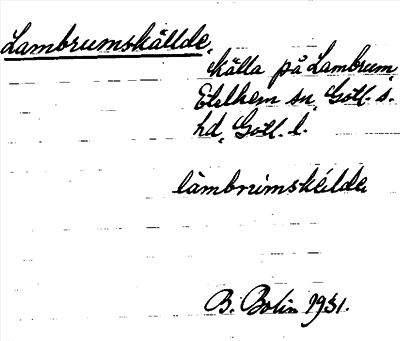 Lambrumskällde,
källa på Lambrum,
Etelhem sn, Gotl. s.
hd, Gotl. l.
làmbrùmskélde
B. Bolin 1931.